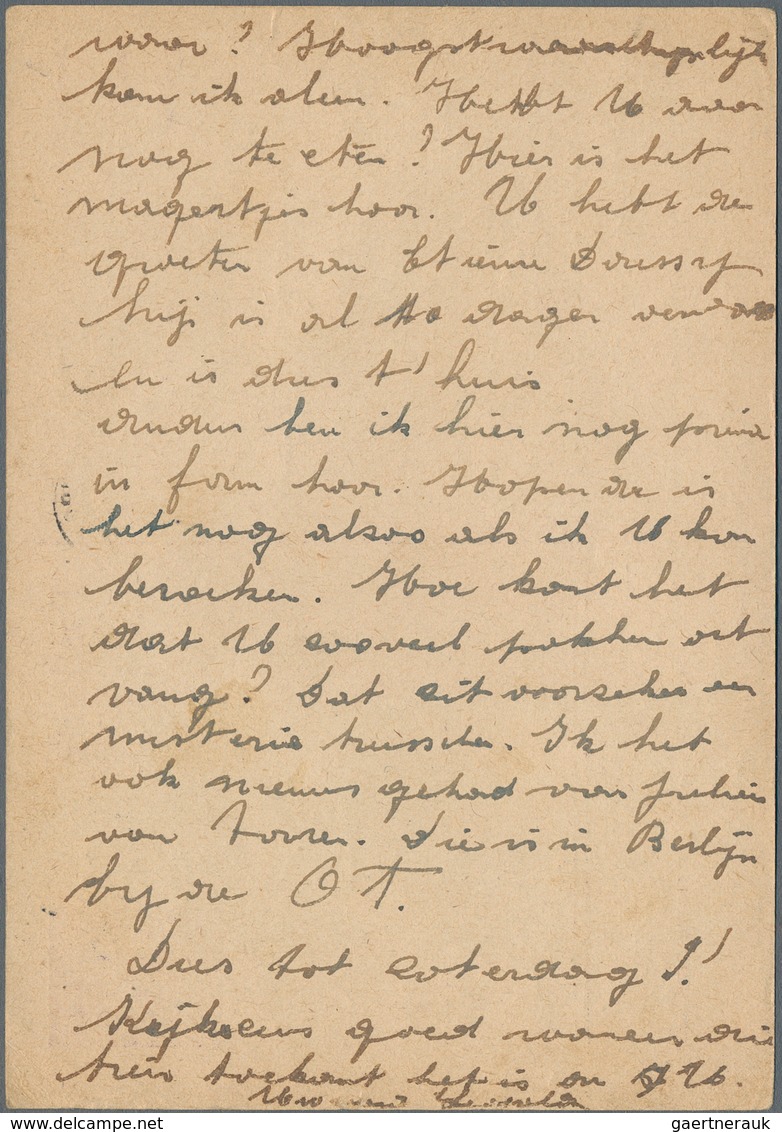 waar? Hoogstwaarschijnlijk
kom ik aleen. Hebbt U daar
nog te eten? Hier is het
magertjes hoor. U hebt de
groeten van Etiene
hij is al dagen
en is dus t' huis
anders ben ik hier nog prima
in form hoor. Hopende is
het nog alsoo als ik U kan
bezoeken. Hoe komt het
dat U zooveel pakken ont
vang? Dat zit voorzeker een
misterie tusschen. Ik heb
ook nieuws gehad van
van Die is in Berlijn
by de OT.
Dus tot zaterdag!!
Kijk eens goed wanneer die
trein toekomt het is om U.
gaertnerauk